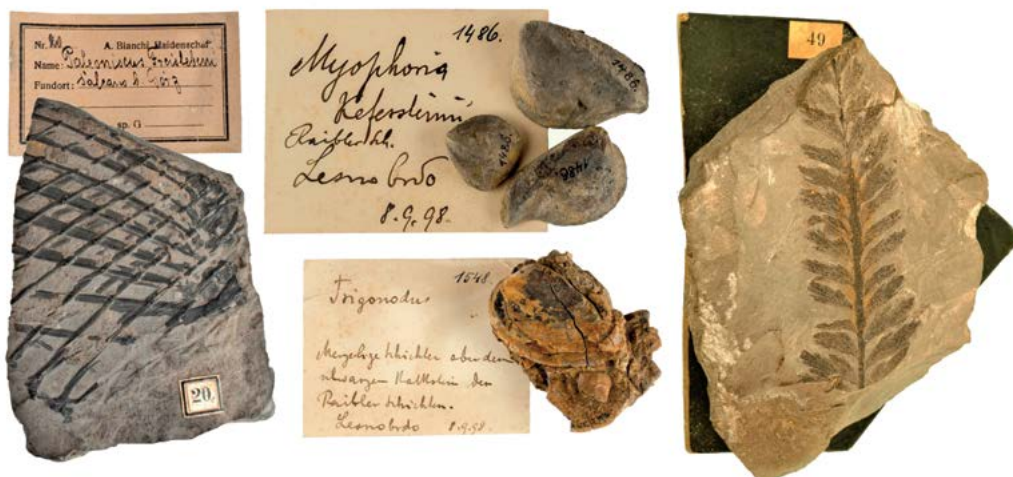 Nr. 20 A. Bianchi, Haidenschaft
Name: Paleoniscus Freiesllebeni
Fundort: Salcano b. Görz
sp. G
20.
1486.
Myophoria
Kefersteinii
Raibler sch.
Lesno brdo
8.9.98.
1486.
1486.
1486.
1548.
Trigonodus
Mergelige Schichten ober dem
schwarzen Kalkstein der
Raibler Schichten.
Lesno brdo 8.9.98.
49